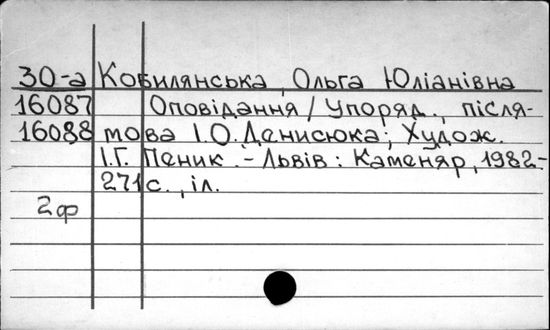 30-а Кобилянська Ольга Юліанівна
16087 Оповідання / Упоряд., після-
16088 мова І.О.Денисюка; Худож.
І.Г. Пеник. - Львів : Каменяр, 1982-
271 с., іл.
2ф